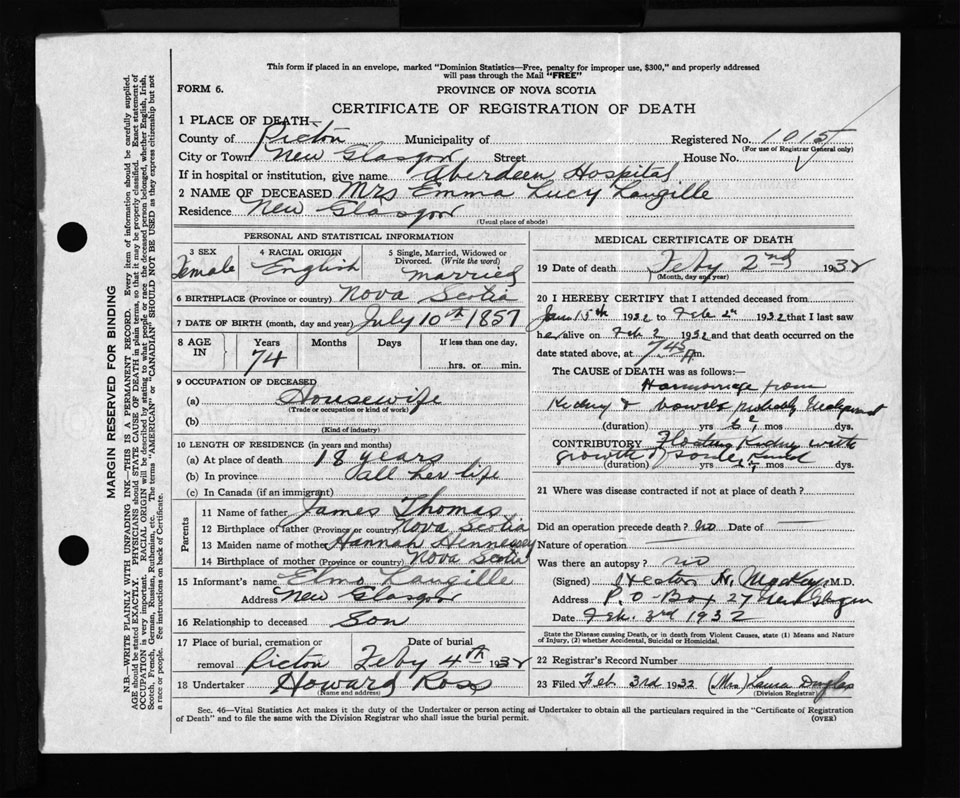 This form if placed in an envelope, marked "Dominion Statistics—Free, penalty for improper use, $300," and properly addressed
will pass through the Mail "FREE"
FORM 6.
PROVINCE OF NOVA SCOTIA
CERTIFICATE OF REGISTRATION OF DEATH
1 PLACE OF DEATH—
County of Pictou Municipality of Registered No. 1015
(For use of Registrar General only)
City or Town New Glasgow Street House No.
If in hospital or institution, give name Aberdeen Hospital
2 NAME OF DECEASED Mrs Emma Lucy Langille
Residence New Glasgow
(Usual place of abode)
PERSONAL AND STATISTICAL INFORMATION
3 SEX 4 RACIAL ORIGIN 5 Single, Married, Widowed or
Divorced. (Write the word)
Female English married
6 BIRTHPLACE (Province or country) Nova Scotia
7 DATE OF BIRTH (month, day and year) July 10th 1857
8 AGE IN Years Months Days If less than one day,
74 hrs. or min.
9 OCCUPATION OF DECEASED
(a) Housewife
(Trade or occupation or kind of work)
(b)
(Kind of industry)
10 LENGTH OF RESIDENCE (in years and months)
(a) At place of death 18 years
(b) In province all her life
(c) In Canada (if an immigrant)
Parents
11 Name of father James Thomas
12 Birthplace of father (Province or country) Nova Scotia
13 Maiden name of mother Hannah Hennessey
14 Birthplace of mother (Province or country) Nova Scotia
15 Informant's name Elmo Langille
Address New Glasgow
16 Relationship to deceased Son
17 Place of burial, cremation or Date of burial
removal Pictou Feby 4th 1932
18 Undertaker Howard Ross
(Name and address)
MEDICAL CERTIFICATE OF DEATH
19 Date of death Feby 2nd 1932
(Month, day and year)
20 I HEREBY CERTIFY that I attended deceased from
Jan 15th 1932 to Feb 2nd 1932 that I last saw
her alive on Feb 2 1932 and that death occurred on the
date stated above, at 7.45 m.
The CAUSE of DEATH was as follows:—
Hamorrage from
Kidney & bowels probably
(duration) yrs mos dys.
CONTRIBUTORY Floating Kidney with
growth of some kind
(duration) yrs mos dys.
21 Where was disease contracted if not at place of death?
Did an operation precede death? no Date of
Nature of operation
Was there an autopsy? no
(Signed) H. M.D.
Address P.O-Box 27 New Glasgow
Date Feb. 3rd 1932
State the Disease causing Death, or in death from Violent Causes, state (1) Means and Nature
of Injury, (2) whether Accidental, Suicidal or Homicidal.
22 Registrar's Record Number
23 Filed Feb 3rd 1932 (Mrs) Laura Douglas
(Division Registrar)
Sec. 46—Vital Statistics Act makes it the duty of the Undertaker or person acting as Undertaker to obtain all the particulars required in the "Certificate of Registration
of Death" and to file the same with the Division Registrar who shall issue the burial permit. (OVER)
MARGIN RESERVED FOR BINDING
N.B.—WRITE PLAINLY WITH UNFADING INK—THIS IS A PERMANENT RECORD. Every item of information should be carefully supplied.
AGE should be stated EXACTLY. PHYSICIANS should STATE CAUSE OF DEATH in plain terms, so that it may be properly classified. Exact statement of
OCCUPATION is very important. RACIAL ORIGIN will be described by stating to what people or race the deceased person belonged, whether English, Irish,
Scotch, French, German, Russian, Ruthenian, etc. The terms "AMERICAN" or "CANADIAN" SHOULD NOT BE USED as they express citizenship but not
a race or people. See instructions on back of Certificate.